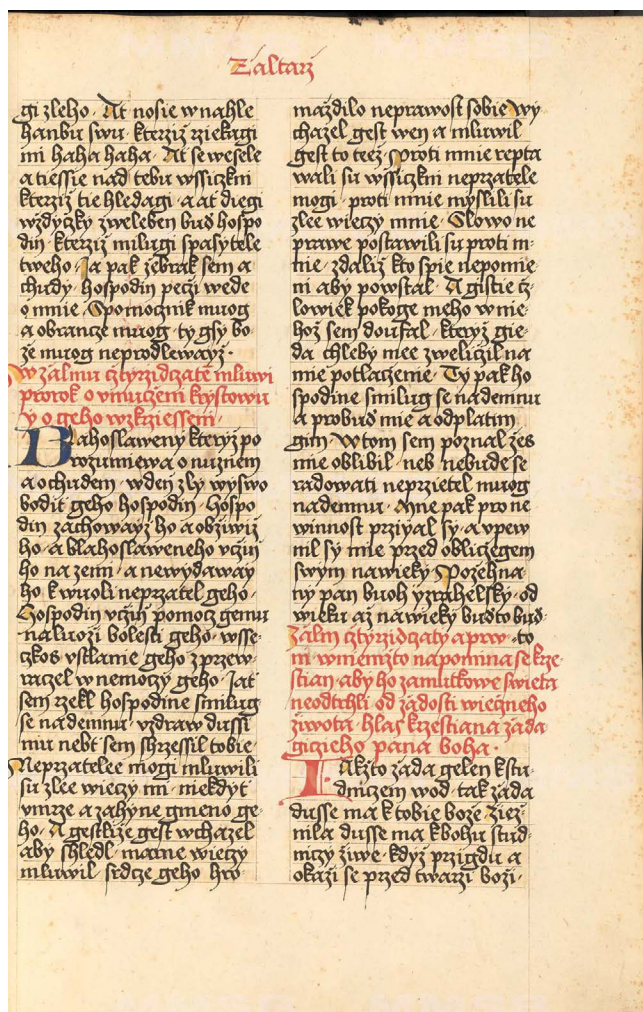 Zaltarz
gi zleho · At nosie w nahle
hanbu swu · kterziz rziekagi
mi haha haha · At se wesele
a tiessie nad tebu wssiczkni
kterziz tie hledagi · a at diegi
wzdyczky zweleben bud hospo
din · kterziz milugi spasytele
tweho · Ja pak zebrak sem a
chudy · hospodin peczi wede
o mnie · Spomocnik muog
a obrancze muog · ty gsy bo-
ze muog neprodlewayz ·
W zalmu cztyrzidczatem mluwi
prorok o vmuczeni krystowu
y o geho wzkrziesseni ·
Blahoslaweny kteryz po
rozumiewa o nuznem
a o chudem · w den zly wyswo
bodit geho hospodin · Hospo
din zachoway ho a obziwiz
ho · a blahoslaweneho vczin
ho na zemi · a newydaway
ho k wuoli neprzatel geho ·
Hospodin vczin pomocz gemu
na luozi bolesti geho · wsse-
czkos vstlanie geho zprzew-
raczel w nemoczy geho · Jat
sem rzekl hospodine smilug
se nademnu · vzdraw dussi
mu nebt sem shrzessil tobie ·
Neprzatelee mogi mluwili
su zlee wieczy mi · niekdyt
vmrze a zahyne gmeno ge-
ho · A gestlize gest wchazel
aby shledl · marne wieczy
mluwil · srdcze geho hro-
mazdilo neprawost sobie Wy
chazel gest wen a mluwil
gest to teez · Proti mnie repta
wali su wssiczkni neprzatele
mogi · proti mnie myslili su
zlee wieczy mnie · Slowo ne
prawe postawili su proti m-
nie · zdaliz kto spie nepomie
ni aby powstal · A gistie cz-
lowiek pokoge meho w nie-
hoz sem doufal · kteryz gie-
da chleby mee zweliczil na
mie potlaczenie · Ty pak ho
spodine smilug se nademnu
a probud mie a odplatim
gim · W tom sem poznal zes
mie oblibil · neb nebude se
radowati neprzietel muog
nademnu · Mne pak pro ne
winnost przigal sy · a vpew
nil sy mie przed obliczegem
swym na wieky · Pozehna-
ny pan buoh yzrahelsky · od
wieku az na wieky bud to bud ·
Zalm cztyrzidczaty a prw · to
ni w niemzto napomina se krze-
stian · aby ho zamutkowe swieta
neodtrhli od zadosti wiecneho
ziwota · hlas krzestiana zada
gicieho pana boha ·
Jakzto zada gelen k stu-
dniczem wod · tak zada
dusse ma k tobie boze · ziez-
nila dusse ma k bohu stud-
niczy ziwe · kdyz przigdu a
okazi se przed twarzi bozi ·